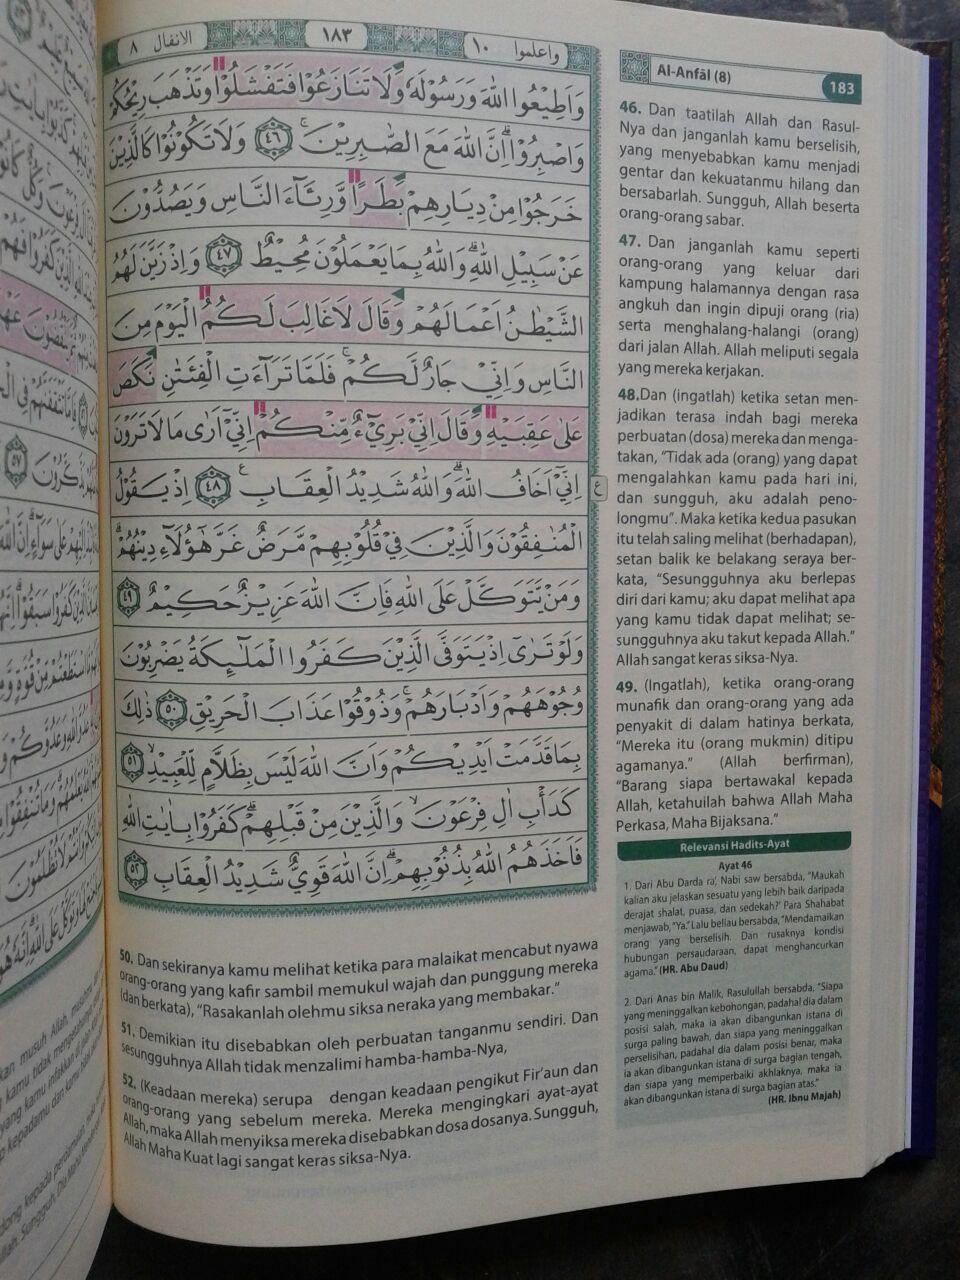 واعلموا ١٠
١٨٣
الانفال ٨
وَاَطِيْعُوا اللّٰهَ وَرَسُوْلَهٗ وَلَا تَنَازَعُوْا فَتَفْشَلُوْا وَتَذْهَبَ رِيْحُكُمْ
وَاصْبِرُوْاۗ اِنَّ اللّٰهَ مَعَ الصّٰبِرِيْنَۚ ٤٦ وَلَا تَكُوْنُوْا كَالَّذِيْنَ
خَرَجُوْا مِنْ دِيَارِهِمْ بَطَرًا وَّرِئَاۤءَ النَّاسِ وَيَصُدُّوْنَ
عَنْ سَبِيْلِ اللّٰهِۗ وَاللّٰهُ بِمَا يَعْمَلُوْنَ مُحِيْطٌ ٤٧ وَاِذْ زَيَّنَ لَهُمُ
الشَّيْطٰنُ اَعْمَالَهُمْ وَقَالَ لَا غَالِبَ لَكُمُ الْيَوْمَ مِنَ
النَّاسِ وَاِنِّيْ جَارٌ لَّكُمْۚ فَلَمَّا تَرَاۤءَتِ الْفِئَتٰنِ نَكَصَ
عَلٰى عَقِبَيْهِ وَقَالَ اِنِّيْ بَرِيْۤءٌ مِّنْكُمْ اِنِّيْٓ اَرٰى مَا لَا تَرَوْنَ
اِنِّيْٓ اَخَافُ اللّٰهَۗ وَاللّٰهُ شَدِيْدُ الْعِقَابِ ࣖ ٤٨ اِذْ يَقُوْلُ
الْمُنٰفِقُوْنَ وَالَّذِيْنَ فِيْ قُلُوْبِهِمْ مَّرَضٌ غَرَّ هٰٓؤُلَاۤءِ دِيْنُهُمْۗ
وَمَنْ يَّتَوَكَّلْ عَلَى اللّٰهِ فَاِنَّ اللّٰهَ عَزِيْزٌ حَكِيْمٌ ٤٩
وَلَوْ تَرٰٓى اِذْ يَتَوَفَّى الَّذِيْنَ كَفَرُوا الْمَلٰۤىِٕكَةُ يَضْرِبُوْنَ
وُجُوْهَهُمْ وَاَدْبَارَهُمْۚ وَذُوْقُوْا عَذَابَ الْحَرِيْقِ ٥٠ ذٰلِكَ
بِمَا قَدَّمَتْ اَيْدِيْكُمْ وَاَنَّ اللّٰهَ لَيْسَ بِظَلَّامٍ لِّلْعَبِيْدِۙ ٥١
كَدَأْبِ اٰلِ فِرْعَوْنَۙ وَالَّذِيْنَ مِنْ قَبْلِهِمْۗ كَفَرُوْا بِاٰيٰتِ اللّٰهِ
فَاَخَذَهُمُ اللّٰهُ بِذُنُوْبِهِمْۗ اِنَّ اللّٰهَ قَوِيٌّ شَدِيْدُ الْعِقَابِ ٥٢
ع
50. Dan sekiranya kamu melihat ketika para malaikat mencabut nyawa
orang-orang yang kafir sambil memukul wajah dan punggung mereka
(dan berkata), "Rasakanlah olehmu siksa neraka yang membakar."
51. Demikian itu disebabkan oleh perbuatan tanganmu sendiri. Dan
sesungguhnya Allah tidak menzalimi hamba-hamba-Nya,
52. (Keadaan mereka) serupa dengan keadaan pengikut Fir'aun dan
orang-orang yang sebelum mereka. Mereka mengingkari ayat-ayat
Allah, maka Allah menyiksa mereka disebabkan dosa dosanya. Sungguh,
Allah Maha Kuat lagi sangat keras siksa-Nya.
Al-Anfāl (8)
183
46. Dan taatilah Allah dan Rasul-
Nya dan janganlah kamu berselisih,
yang menyebabkan kamu menjadi
gentar dan kekuatanmu hilang dan
bersabarlah. Sungguh, Allah beserta
orang-orang sabar.
47. Dan janganlah kamu seperti
orang-orang yang keluar dari
kampung halamannya dengan rasa
angkuh dan ingin dipuji orang (ria)
serta menghalang-halangi (orang)
dari jalan Allah. Allah meliputi segala
yang mereka kerjakan.
48.Dan (ingatlah) ketika setan men-
jadikan terasa indah bagi mereka
perbuatan (dosa) mereka dan menga-
takan, "Tidak ada (orang) yang dapat
mengalahkan kamu pada hari ini,
dan sungguh, aku adalah peno-
longmu". Maka ketika kedua pasukan
itu telah saling melihat (berhadapan),
setan balik ke belakang seraya ber-
kata, "Sesungguhnya aku berlepas
diri dari kamu; aku dapat melihat apa
yang kamu tidak dapat melihat; se-
sungguhnya aku takut kepada Allah."
Allah sangat keras siksa-Nya.
49. (Ingatlah), ketika orang-orang
munafik dan orang-orang yang ada
penyakit di dalam hatinya berkata,
"Mereka itu (orang mukmin) ditipu
agamanya." (Allah berfirman),
"Barang siapa bertawakal kepada
Allah, ketahuilah bahwa Allah Maha
Perkasa, Maha Bijaksana."
Relevansi Hadits-Ayat
Ayat 46
1. Dari Abu Darda ra', Nabi saw bersabda, "Maukah
kalian aku jelaskan sesuatu yang lebih baik daripada
derajat shalat, puasa, dan sedekah?' Para Shahabat
menjawab, "Ya." Lalu beliau bersabda, "Mendamaikan
orang yang berselisih. Dan rusaknya kondisi
hubungan persaudaraan, dapat menghancurkan
agama." (HR. Abu Daud)
2. Dari Anas bin Malik, Rasulullah bersabda, "Siapa
yang meninggalkan kebohongan, padahal dia dalam
posisi salah, maka ia akan dibangunkan istana di
surga paling bawah, dan siapa yang meninggalkan
perselisihan, padahal dia dalam posisi benar, maka
ia akan dibangunkan istana di surga bagian tengah,
dan siapa yang memperbaiki akhlaknya, maka ia
akan dibangunkan istana di surga bagian atas."
(HR. Ibnu Majah)